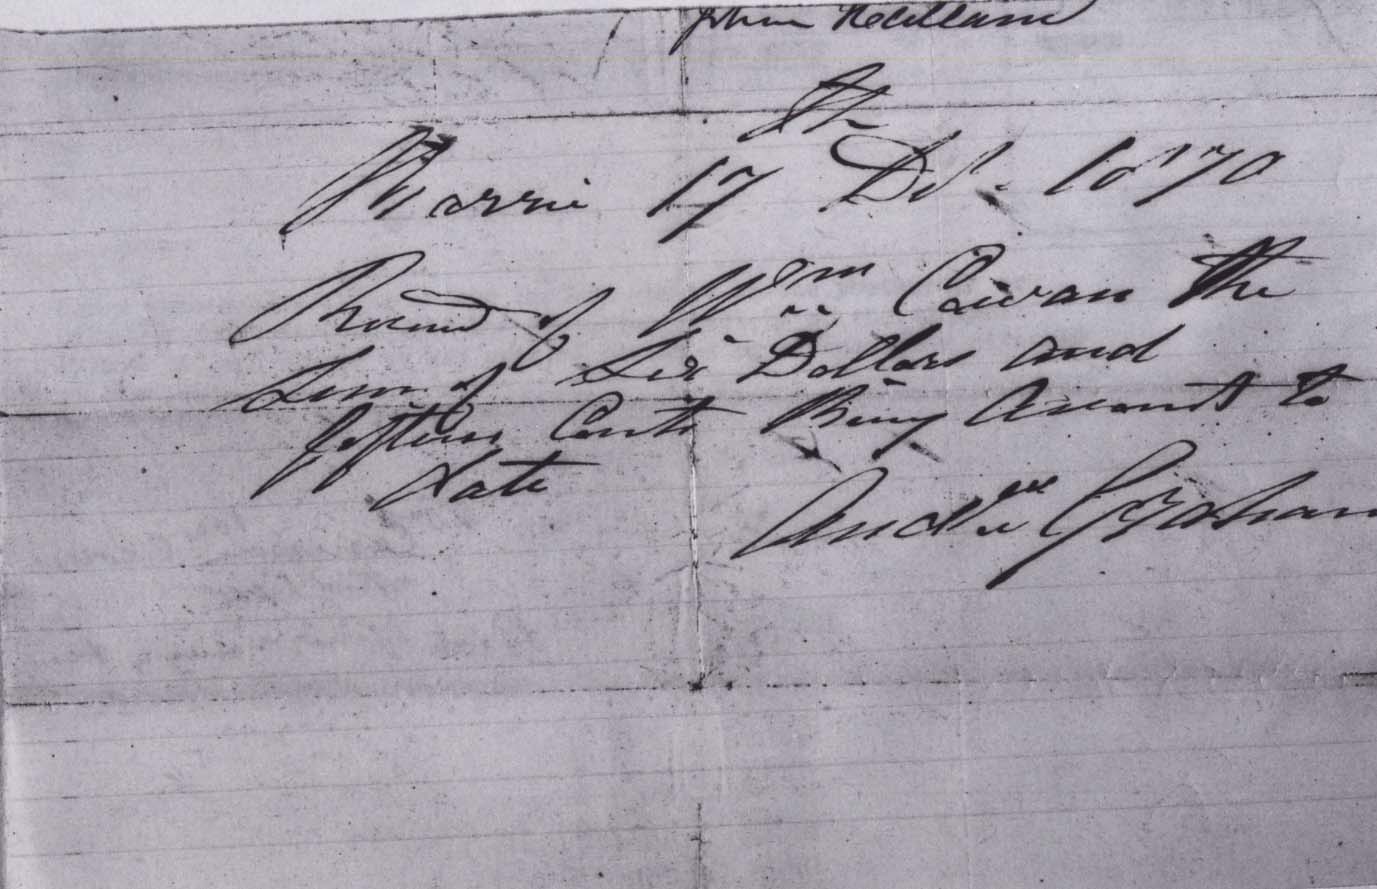 John
Barrie 17th Dec. 1870
Received of Wm Cowan the
Sum of Six Dollars and
fifteen Cents Being Amount to
date
Andrew Graham